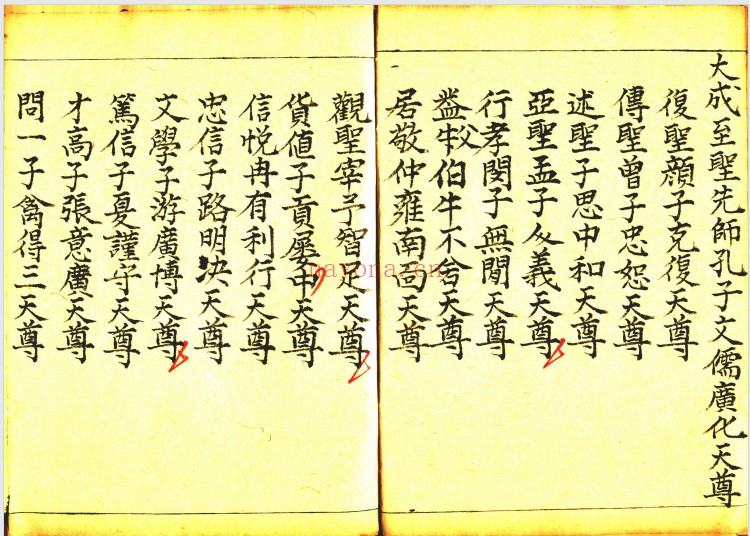 大成至聖先師孔子文儒廣化天尊
復聖顏子克復天尊
傳聖曾子忠恕天尊
述聖子思中和天尊
亞聖孟子仁義天尊
行孝閔子無閒天尊
益伯牛不舍天尊
居敬仲雍南面天尊
觀聖宰予智足天尊
貨値子貢屢中天尊
信悅冉有利行天尊
忠信子路明决天尊
文學子游廣博天尊
篤信子夏謹守天尊
才高子張意廣天尊
問一子禽得三天尊
nayona.cn